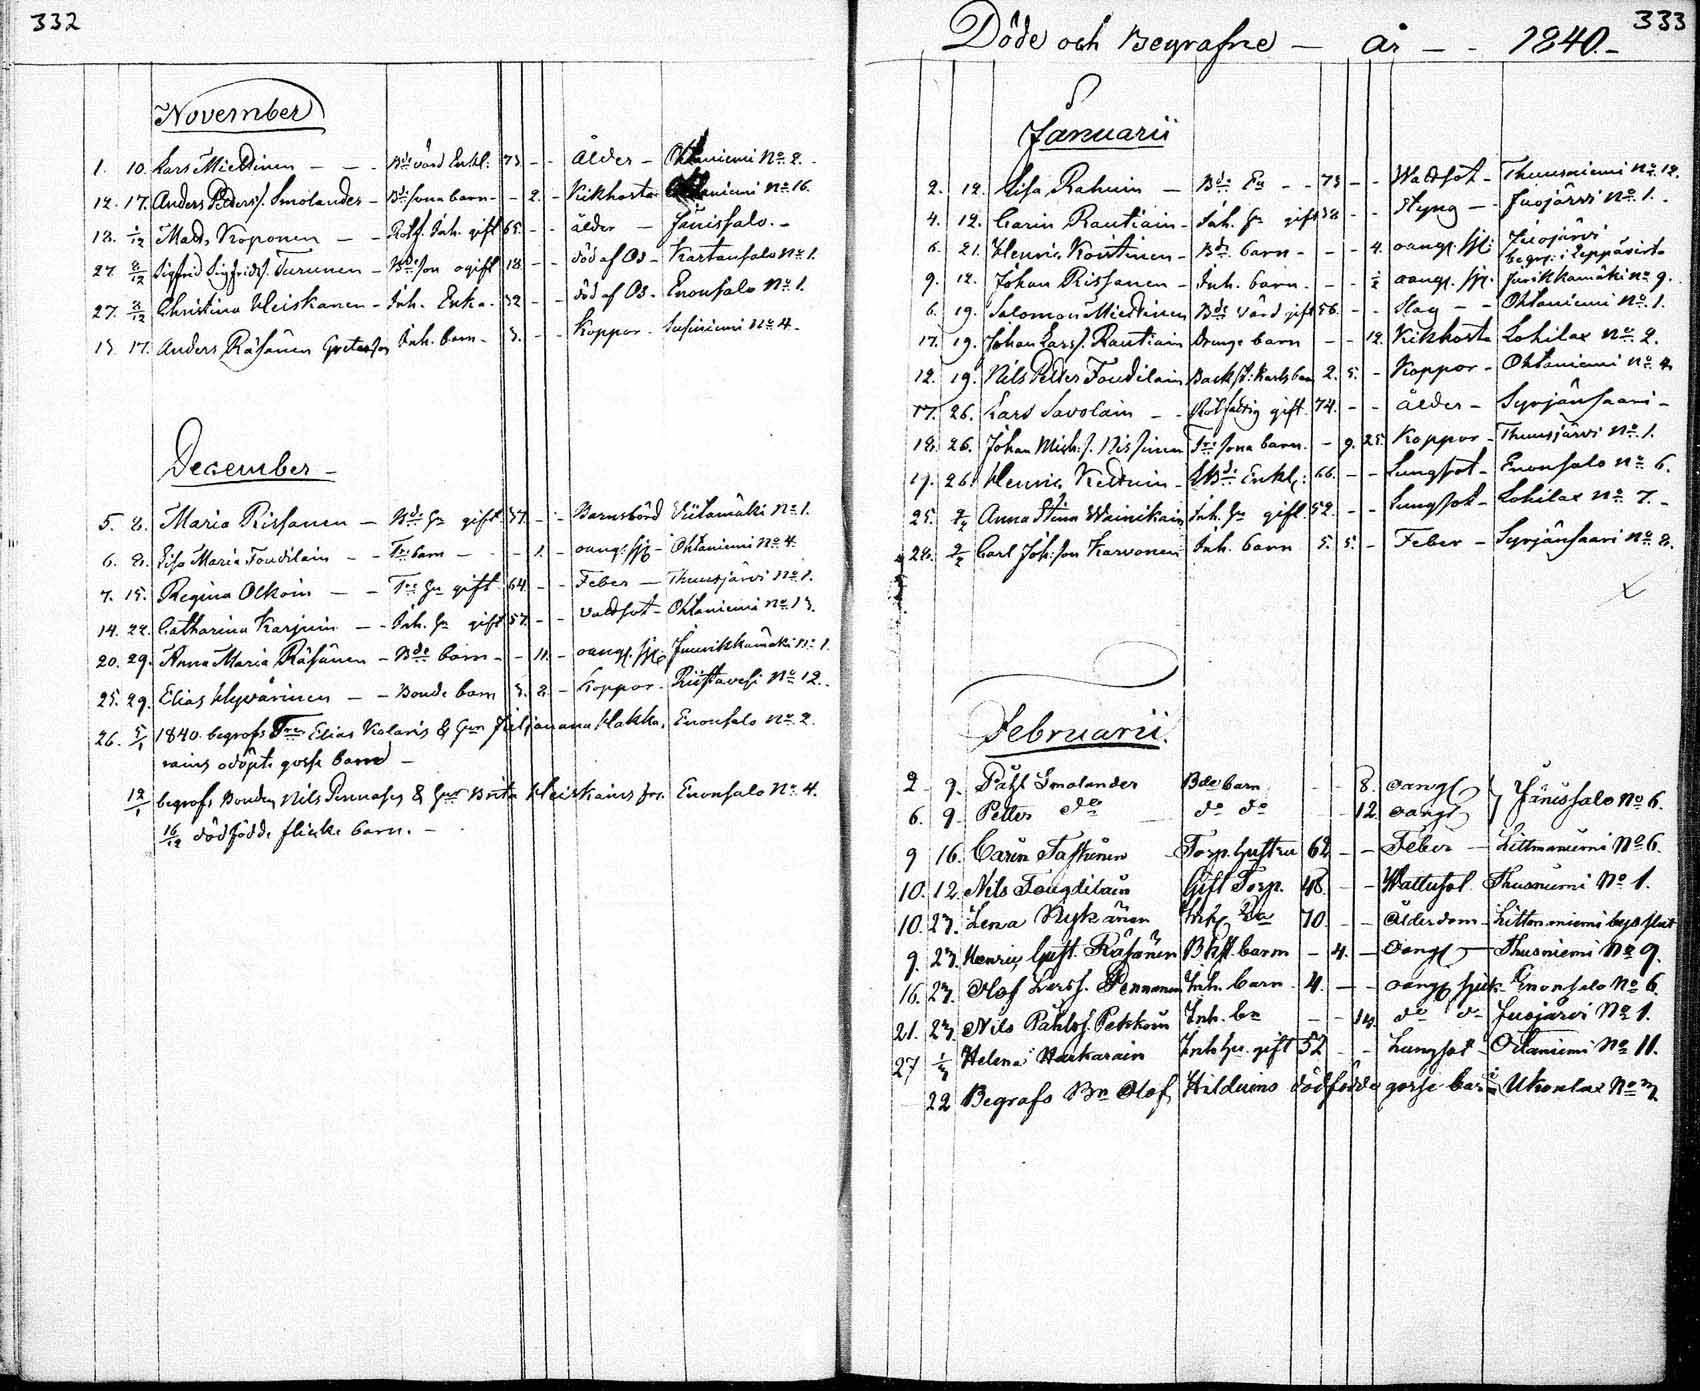 332
November
1. 10. Lars Miettinen - - Bde värd Enkl: 73 - - Ålder - Ohtaniemi No 2.
12. 17. Anders Petters/. Smolander - Bde sona barn - - 2. - Kikhosta - niemi No 16.
18. 1/12 Mats Koponen - - Rotf. Inh. gift 65. - - ålder - Jänissalo. -
27. 8/12 Sigfrid Sigfrids/. Turunen - Bde son ogift 18 - - död af Os - Kartansalo No 1.
27. 8/12 Christina Heiskanen - Inh. Enka. 32 - - död af Os - Enonsalo No 1.
13. 17. Anders Räsänen Greteson Inh. barn - 3. - - Koppor - Susiniemi No 4.
December -
5. 8. Maria Rissanen - Bde Hu gift 37. - - Barnsbörd Viitamäki No 1.
6. 8. Lisa Maria Toudilain - Tre barn - - 1. - oang: sjd - Ohtaniemi No 4.
7. 15. Regina Olkoin - - Tre Hu gift 64. - - Feber - Thuusjärvi No 1.
14. 22. Catharina Karjuin - - Inh. Hu gift 57. - - vattsot - Ohtaniemi No 13.
20. 29. Anna Maria Räsänen - Bde barn - - 11. - oang. sjd. Juurikkamäki No 1.
25. 29. Elias Hyvärinen - - Bonde barn 3. 8. - Koppor - Riistavesi No 12.
26. 5/1 1840. begrofs Tren Elias Kolaris & Hun Juljanana Hakka, Enonsalo No 2.
rains odöpte gosse barn -
12/1 begrofs Bonden Nils Pennases & Hus Brita Heiskains för. Enonsalo No 4.
16/12 dödfödde flicke barn. -
333
Döde och Begrafne - År - - 1840. -
Januarii
2. 12. Lisa Rahuin - Bde Ea - - 73 - - Wattsot - Thuusniemi No 12.
4. 12. Carin Rautiain - Inh. Hu gift 38 - - Styng - Juojärvi No 1. -
6. 21. Henric Kontinen - Bde barn - - - 4. oang. sjd: Juojärvi
begr. i Leppävirta
9. 12. Johan Rissanen - Inh. barn. - - 1/2 oang. sjd. Juurikkamäki No 9.
6. 19. Salomon Miettinen Bde värd gift 56. - - Slag - - Ohtaniemi No 1.
17. 19. Johan Larss/. Rautiain Drenge barn - - 12. Kikhosta Lohilax No 2.
12. 19. Nils Petter Toudilain Backst: Karls barn 2. 5. - Koppor - Ohtaniemi No 4.
17. 26. Lars Savolain - - Rotfattig gift 74. - - Ålder - Syrjänsaari -
18. 26. Johan Mich:s/. Nissinen Tre sona barn. - 9. 25. Koppor - Thuusjärvi No 1.
19. 26. Henric Kettuin - Bde Enkl: 66. - - Lungsot - Enonsalo No 6.
25. 2/2 Anna Stina Wainikain Inh. Hu gift. 52. - - Lungsot - Lohilax No 7. -
28. 2/2 Carl Joh: son Karvonen Inh. barn 5. 5. - Feber - Syrjänsaari No 8.
Februarii.
2 9. Påhl Smolander Bde barn - - 8. oangd } Jänissalo No 6.
6. 9. Petter do do do - - 12 oangd
9 16. Carin Taskinen Torp. hustru 62 - - Feber - Littmaniemi No 6.
10. 12. Nils Tougdilain Gift Torp. 48 - - Wattusot. Thusniemi No 1.
10. 23. Lena Nykänen Inh. Ea 70 - - Ålderdom - Littmaniemi
9. 23. Henric Gust. Räsänen Bkst. barn - 4. - Oangd - Thusniemi No 9.
16. 23. Olof Larss/. Pennanen Inh. barn 4. - - oangd sjuk Enonsalo No 6.
21. 23. Nils Påhls/. Petskoin Inh. bn - - 14. do do Juojärvi No 1.
27 1/3 Helena Harkarain Inh. Hu. gift 52 - - Lungsot - Ottaniemi No 11.
22 Begrafs Bn Olof Hilduins dödfödde gosse barn i Ukonlax No 3